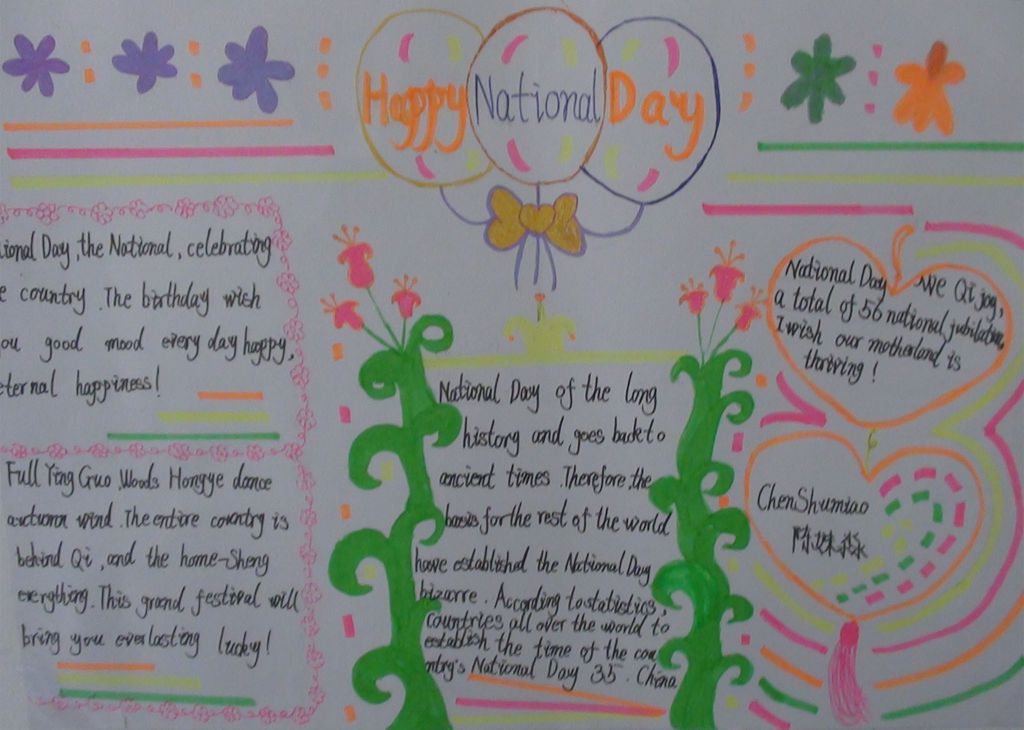 Happy National Day
ional Day, the National, celebrating
e country. The birthday wish
ou good mood every day happy,
eternal happiness!
Full Ying Guo, Woods Hongye dance
autumn wind. The entire country is
behind Qi, and the home-Sheng
everything. This grand festival will
bring you everlasting lucky!
National Day of the long
history and goes back to
ancient times. Therefore, the
basis for the rest of the world
have established the National Day
bizarre. According to statistics,
countries all over the world to
establish the time of the cou
ntry's National Day 35. China
National Day We Qi joy,
a total of 56 national jubilation,
I wish our motherland is
thriving!
Chen Shumiao
陈姝淼